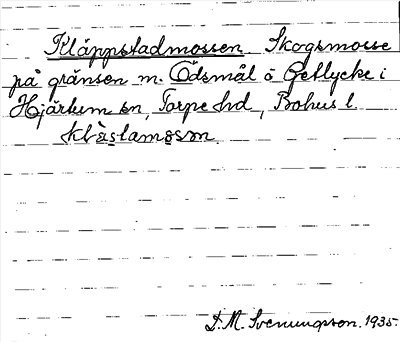 Kläppstadmossen. Skogsmosse
på gränsen m. Ödsmål o Getlycke i
Hjärtum sn, Torpe hd, Bohus l.
J. M. Svenungsson. 1935.